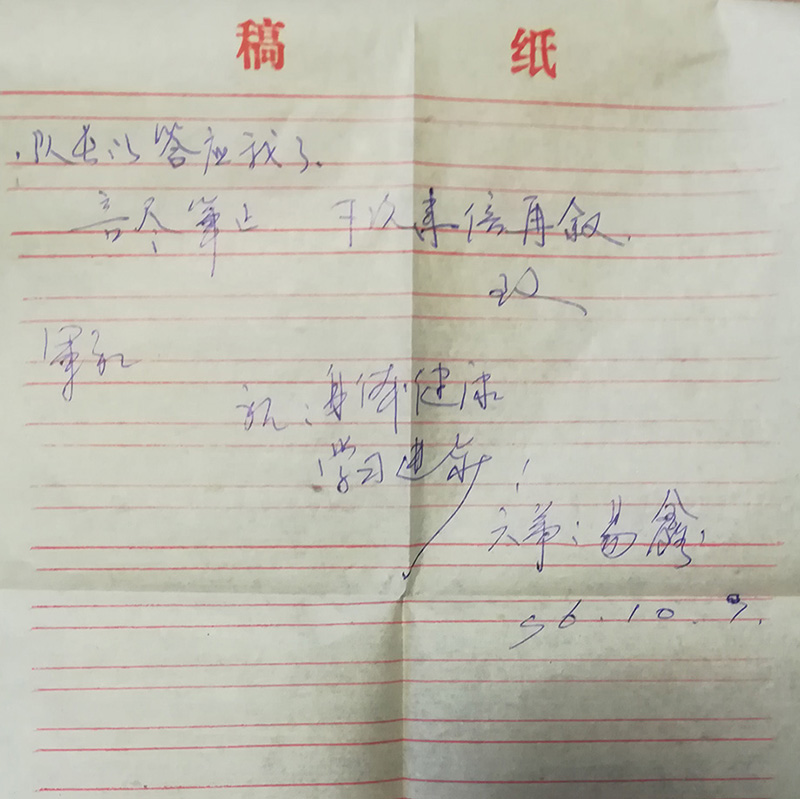 稿 纸
队长以答应我了.
言尽笔止 下次来信再叙.
致
军礼
祝:身体健康
学习进步!
弟:易鑫.
56.10.9.